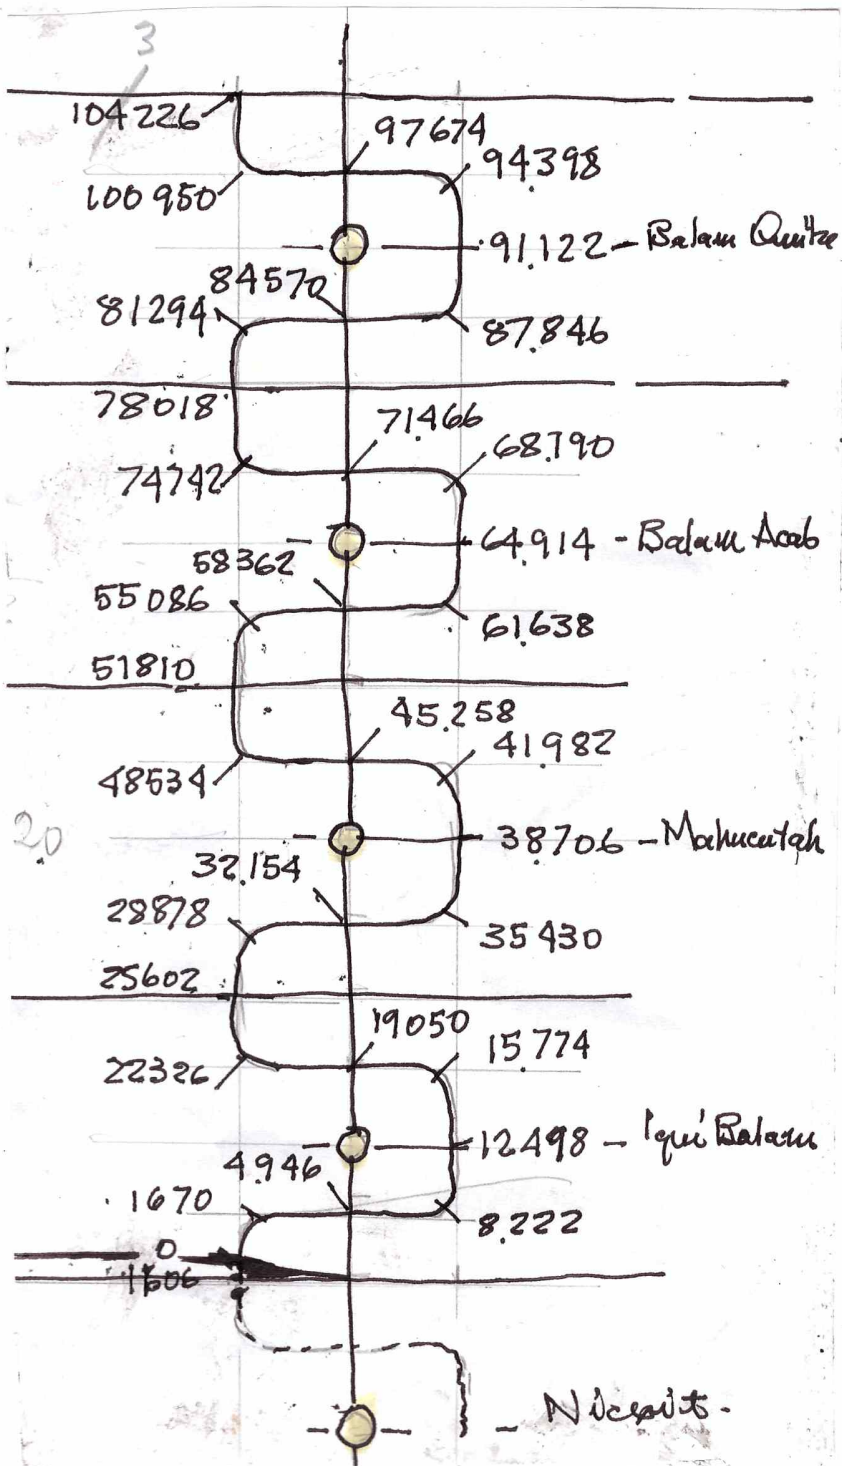 3
104226
97674
94.398
100950
91.122 - Balam Quitze
84570
81294
87.846
78018
71.466
68.790
74742
64.914 - Balam Acab
58362
55086
61.638
51810
45.258
41.982
48534
20
38.706 - Mahucutah
32.154
28878
35430
25602
19050
15.774
22326
12.498 - Iqui Balam
4.946
1670
8.222
0
1606